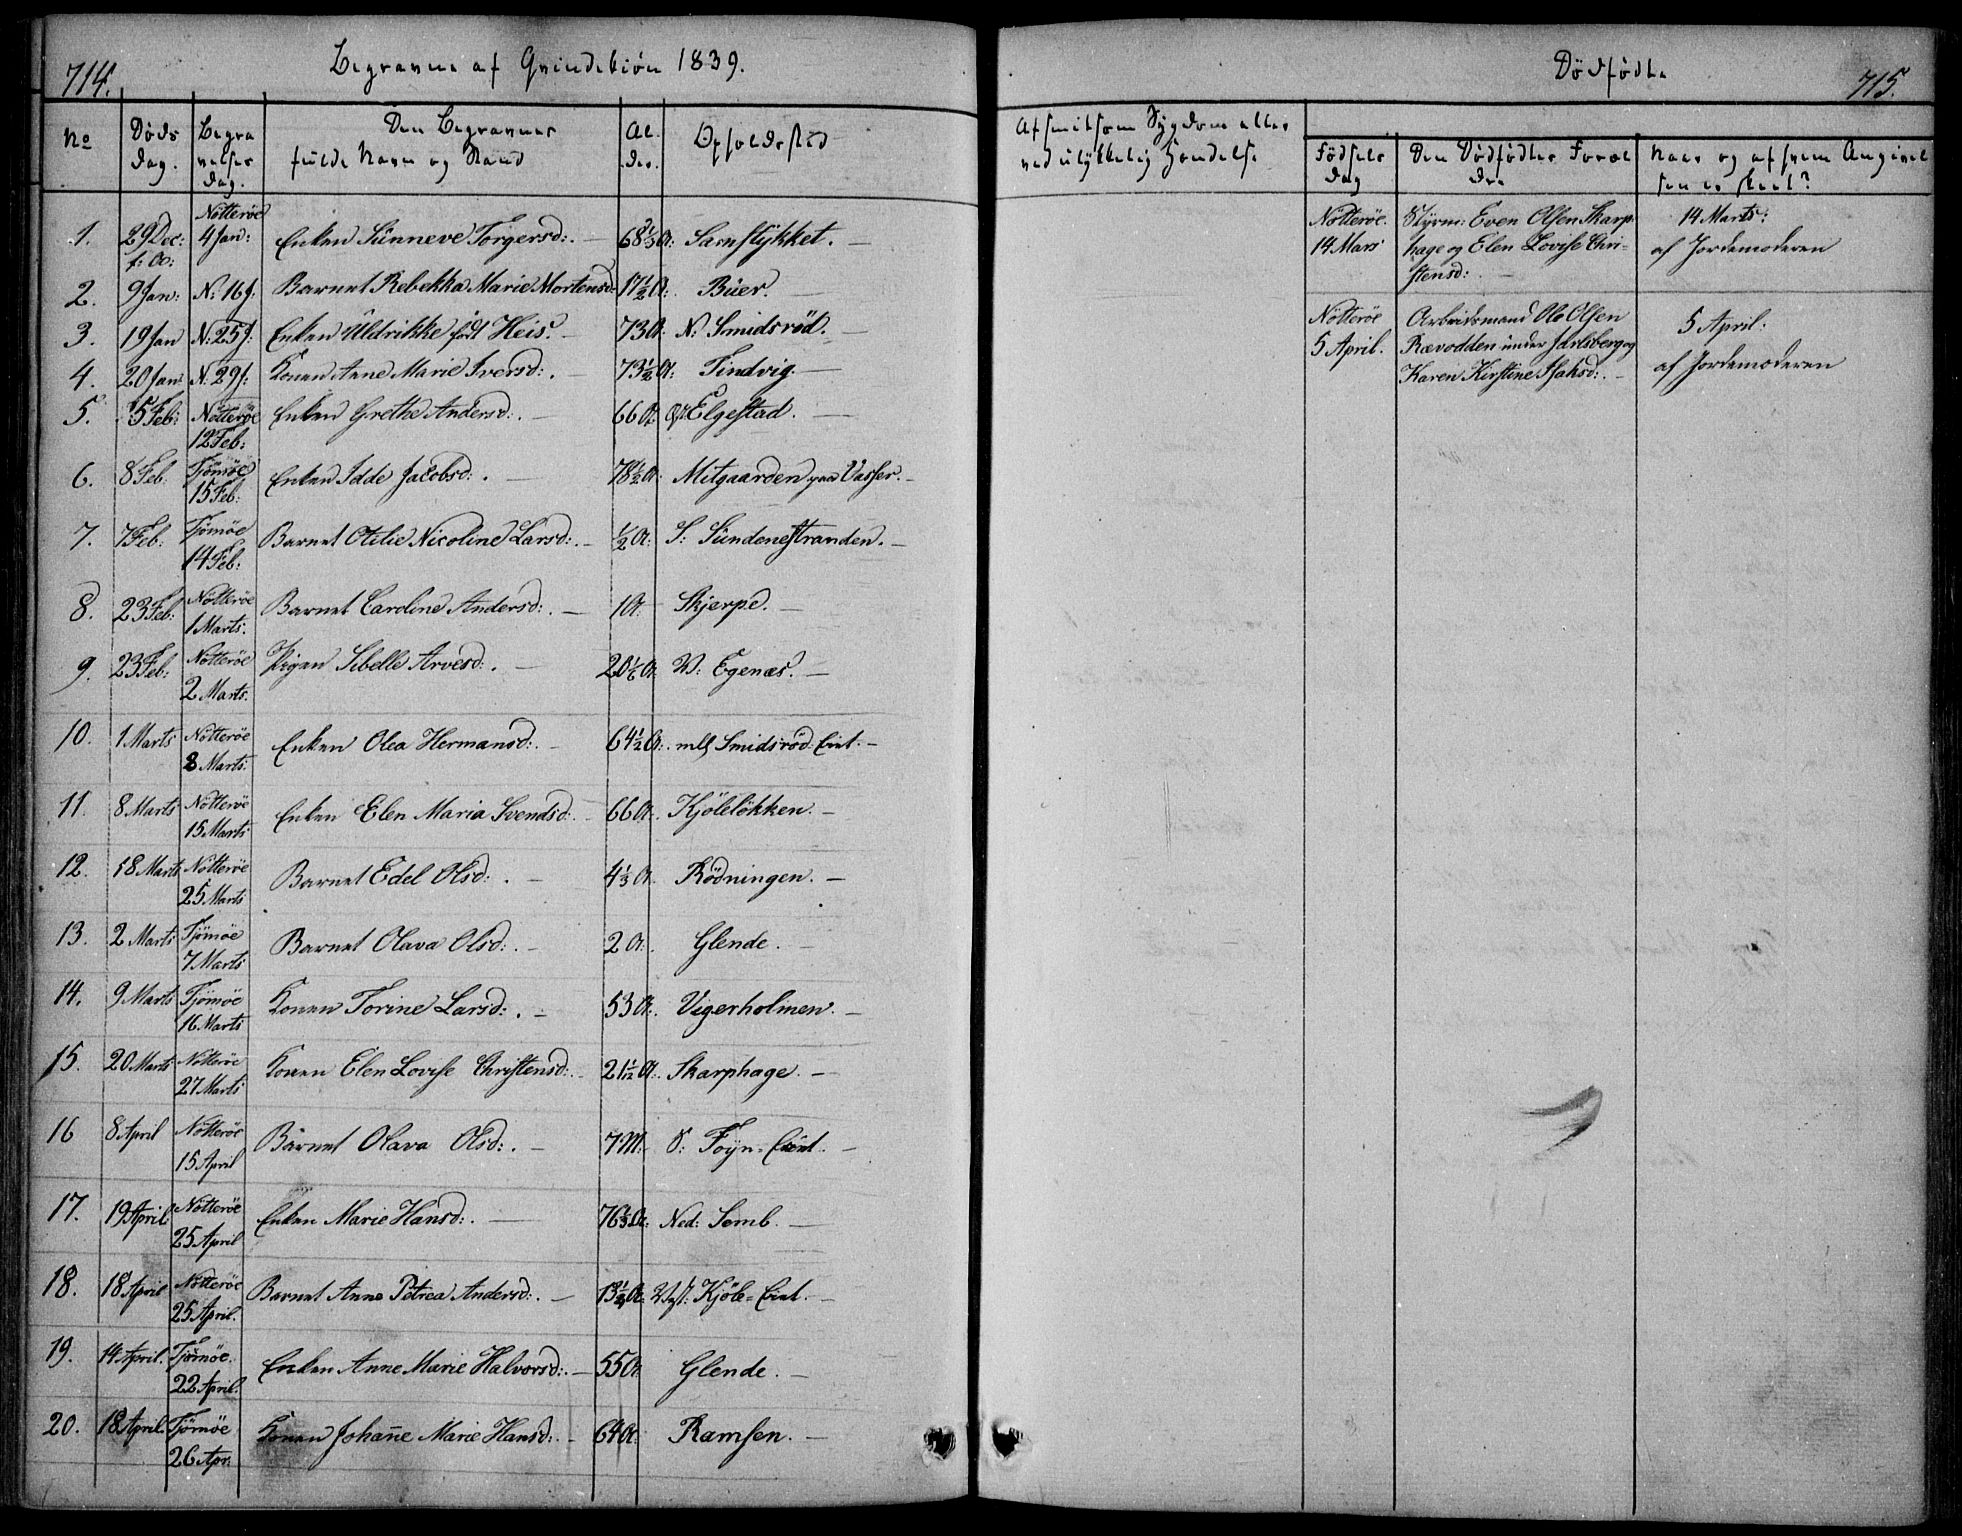 714.
Begravne af Qvindekiøn 1839.
No
Døds Dag.
Begravelses Dag.
Den Begravnes fulde Navn og Stand
Alder.
Opholdssted
1. 29 Dec: f: A: Nötteröe 4 Jan: Enken Sünneve Torgersd:. — 68 A: Sarnstykket. —
2. 9 Jan: N: 16 J: Barnet Rebekka Marie Mortensd: 17½ A: Büer. —
3. 19 Jan N: 25 J: Enken Uldrikke født Heis. — 73 A: N: Smidsröd. —
4. 20 Jan: N. 29 J: Konen Anne Marie Iversd:. 73½ A: Tindvig —
5. 5 Feb: Nötteröe 12 Feb: Enken Grethe Andersd:. — 66 A: Elgestad. —
6. 8 Feb. Tjömöe 15 Feb: Enken Idde Jacobsd:. — 78½ A: Mitgaarden paa Vasser. —
7. 7 Feb: Tjömöe 14 Feb: Barnet Otilie Nicoline Larsd:. — ½ A: S: Sündenestranden. —
8. 23 Feb: Nötteröe 1 Marts: Barnet Caroline Andersd:. — 1 A: Skjerpe. —
9. 23 Feb: Nötteröe 2 Marts. Pigen Sibelle Arvesd:. — 20⅙ A: W: Egenæs. —
10. 1 Marts Nötteröe 8 Marts: Enken Olea Hermansd:. — 64½ A: mlh Smidsröd Eiet. —
11. 8 Marts Nötteröe 15 Marts Enken Elen Maria Svendsd:. — 66 A: Kjöleløkken. —
12. 18 Marts Nötteröe 25 Marts Barnet Edel Olsd:. — 4⅓ A: Rödningen. —
13. 2 Marts Tjömöe 7 Marts Barnet Olava Olsd:. — 2 A: Glende. —
14. 9 Marts Tjömöe 16 Marts Konen Torine Larsd:. — 53 A: Vigerholmen. —
15. 20 Marts Nötteröe 27 Marts Konen Elen Lovise Christensd:. 21 1/12 A: Skarphage. —
16 8 April Nötteröe 15 April Barnet Olava Olsd:. — 7 M: S: Foyn-Eiet. —
17. 19 April Nötteröe 25 April Enken Marie Hansd:. — 76⅓ A: Ned: Semb. —
18. 18 April Nötteröe 25 April. Barnet Anne Petrea Andersd:. — 13½ A: Vest: Kjöle-Eiet. —
19. 14 April. Tjömöe. 22 April. Enken Anne Marie Halvorsd:. — 55 A: Glende. —
20. 18 April. Tjömöe 26 Apr. Konen Johanne Marie Hansd:. — 64 A: Ramsen. —
Dødfødte
715.
Af smitsom Sygdom eller
ved ulykkelig Hændelse
Fødsels Dag
Den Dødfødtes Forældre
Naar og af hvem Angivelsen er skeet?
Nötteröe. 14 Mars
Styrm: Even Olsen Skarp-
hage og Elen Lovise Chri-
stensd:. —
14 Marts:
af Jordemoderen
Nötteröe 5 April.
Arbeidsmand Ole Olsen
Rævodden under Jarlsberg og
Karen Kirstine Isaksd:. —
5 April:
af Jordemoderen